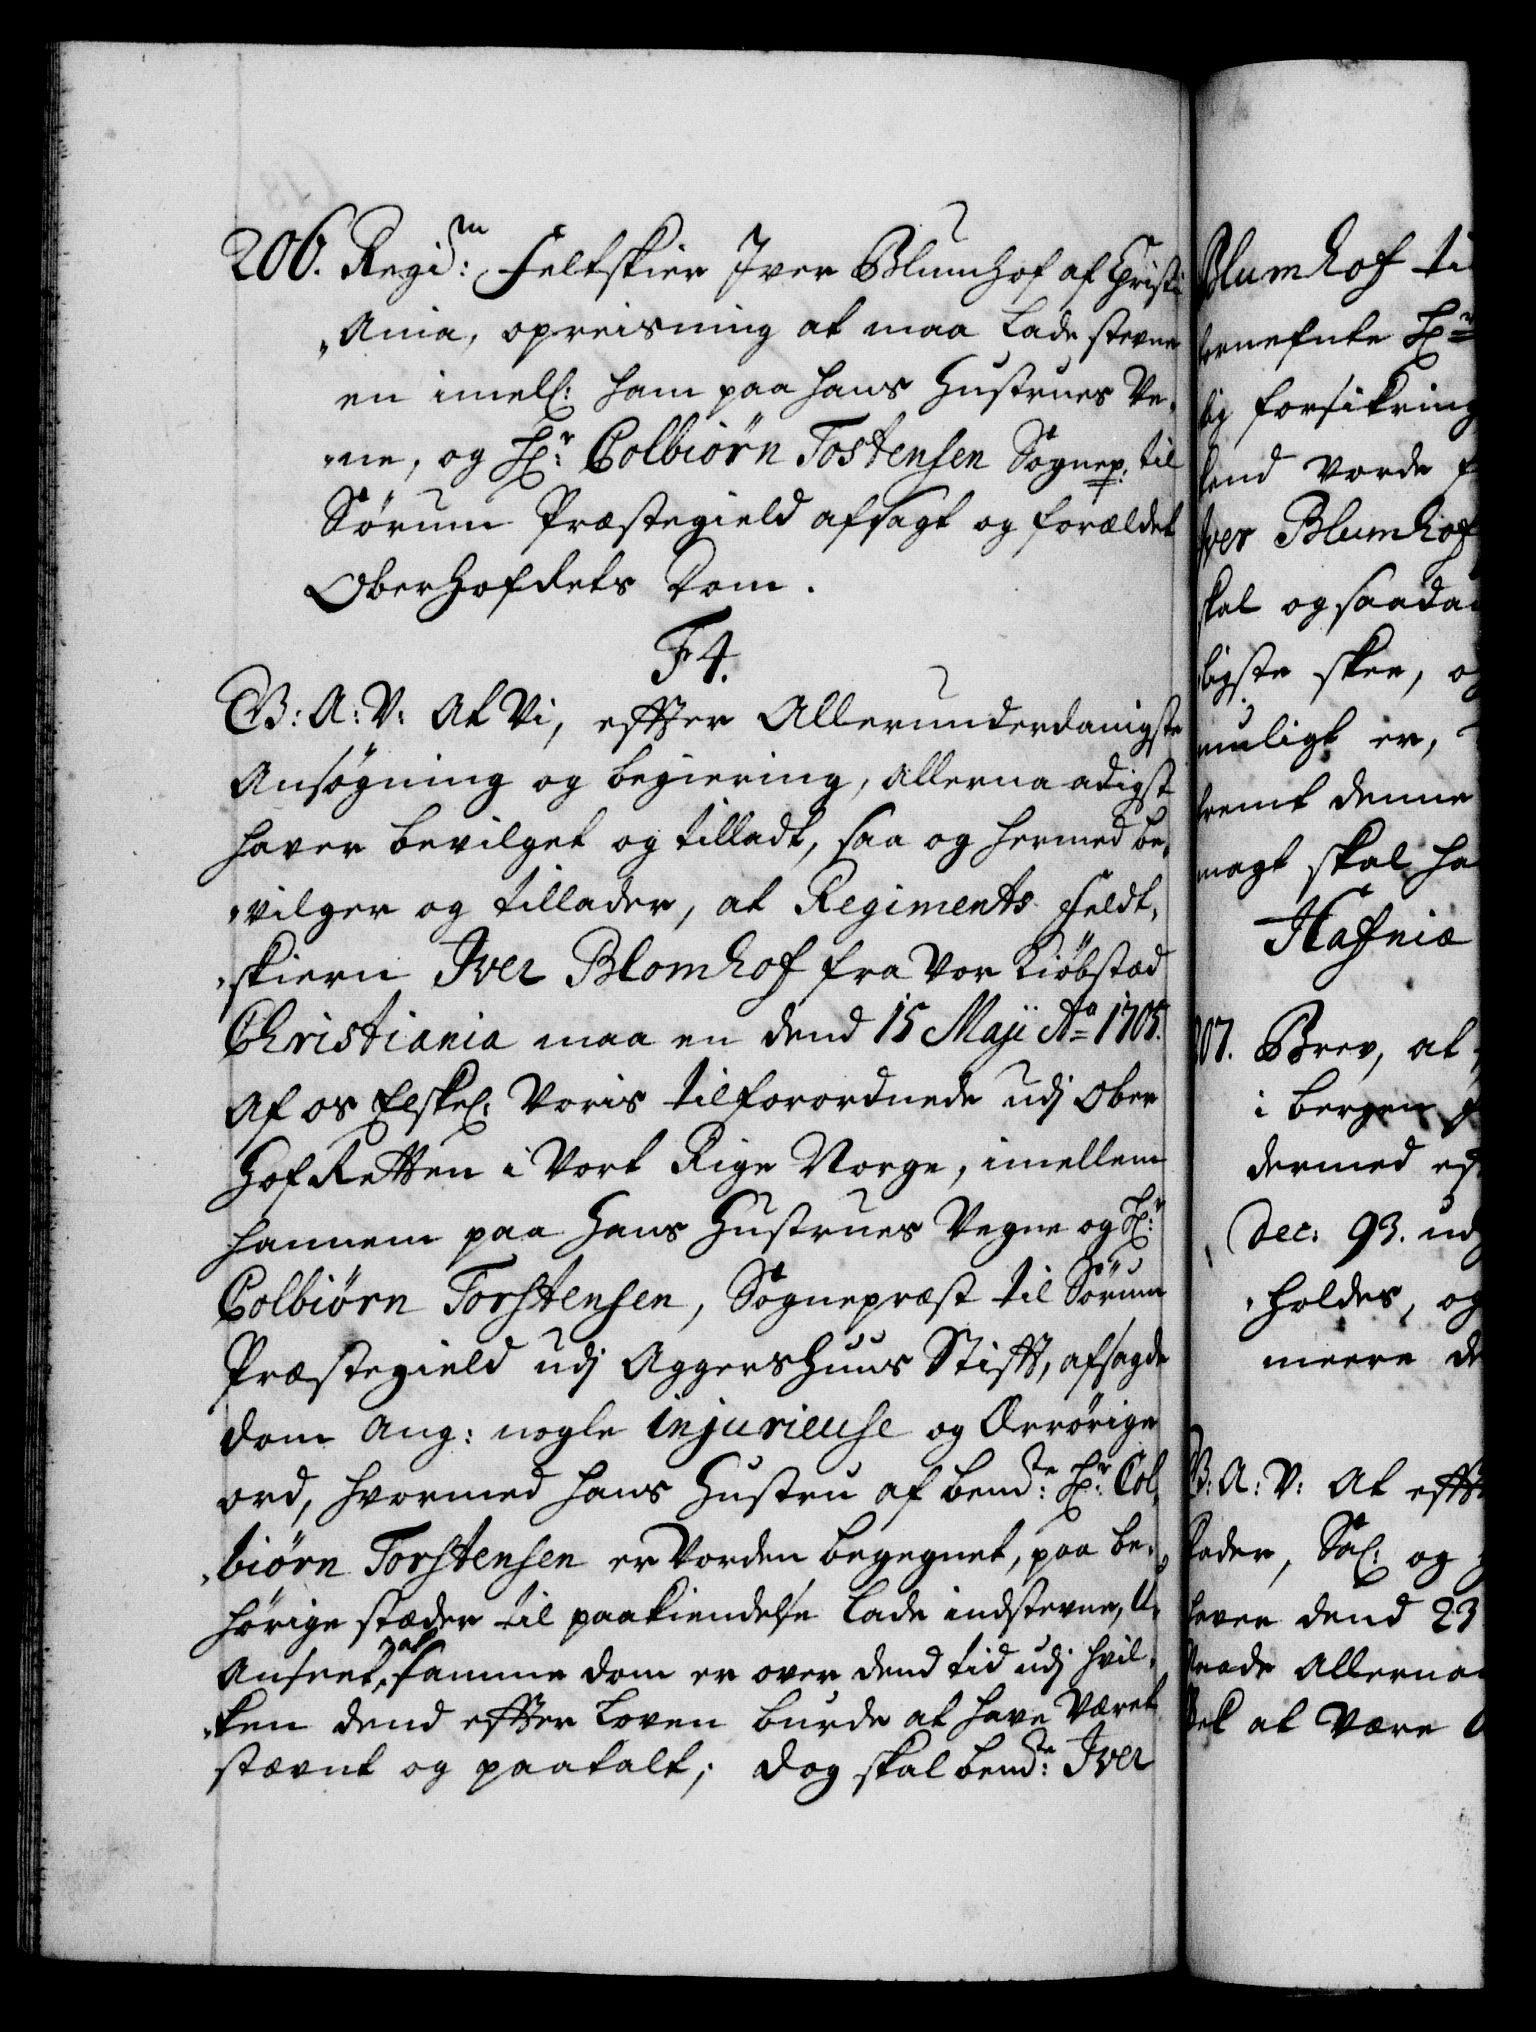 206. Regim: Feltskier Iver Blumhof af Christi
„Ania, opreisning at maa lade stevne
en imell: ham paa hans Hustrues Ve„
„ne, og Hr: Colbiørn Tostensen Sognep: til
Sørum Præstegield afsagt og forældet
OberHofdets Dom.
F4.
G: A: V: At Vi, effter Allerunderdanigste
Ansøgning og begiering, Allernaadigst
haver bevilget og tilladt, saa og hermed be„
„vilger og tillader, at Regiments Feldt„
„skiern Iver Blomhof fra Vor Kiøbstæd
Christiania maa en dend 15 Maji Ao 1705.
Af os Elskel: Voris tilforordnede udj Ober
HofRetten i Vort Rige Norge, imellem
hannem paa Hans Hustrues Vegne og Hr:
Colbiørn Torstensen, Sognepræst til Sørum
Præstegield udj Aggershuus Stifft, afsagde
Dom Ang: nogle injurieuse og Ærrørige
ord, hvormed hans Hustru af bemd.te Hr: Col„
„biørn Torstensen er Vorden begegnet, paa be„
hørige stæder til paakiendelse lade indstevne, U„
Anseet, at samme Dom er over dend tid udj hvil„
„ken dend effter Loven burde at have Været
stævnt og paatalt; Dog skal bemd.te Iver
Blumhof
Hr
forsikring
Vorde
Iver Blumhof
skal og saada
ligste skee, og
muligt er,
denne
magt skal ha
Hafniæ
207. Brev, at
i bergen
dermed
Dec: 93. ud
„holdes, og
meere
G: A: V: At efft
Sal: og
haver dend 23
Naade Allerna
at Være